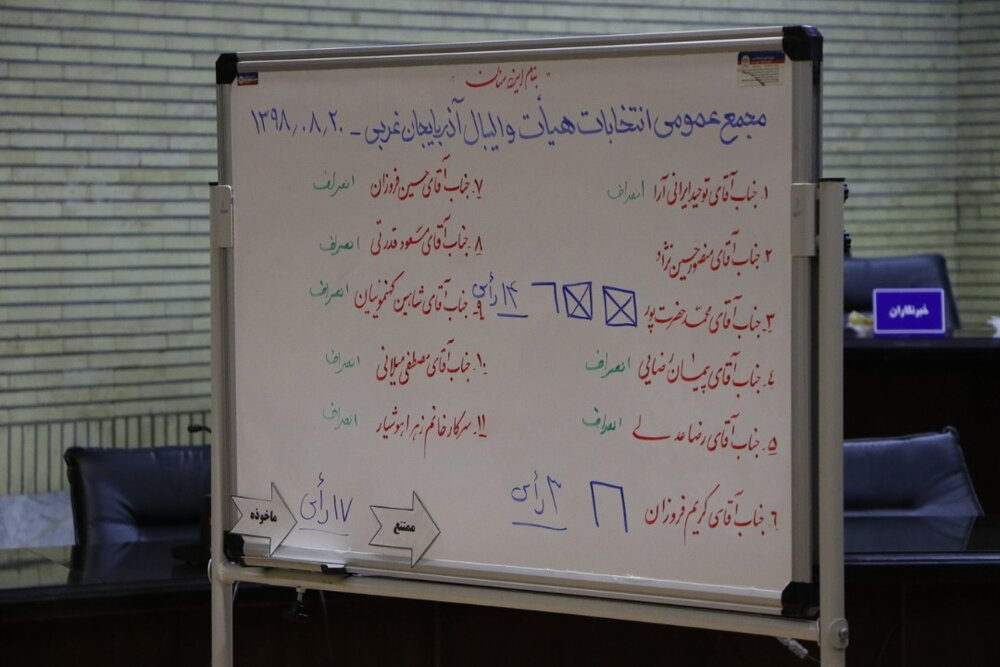 "بنام ایزد منان"
مجمع عمومی انتخابات هیأت والیبال آذربایجان غربی - ۱۳۹۸٫۰۸٫۲۰
۱. جناب آقای توحید ایرانی آرا انصراف
۲. جناب آقای منصور حسین نژاد
۳. جناب آقای محمد حضرت پور ۱۴ رأی
۴. جناب آقای پیمان رضایی انصراف
۵. جناب آقای رضا عدلی انصراف
۶. جناب آقای کریم فروزان ۳ رأی
۷. جناب آقای حسین فروزان انصراف
۸. جناب آقای مسعود قدرتی انصراف
۹. جناب آقای شاهین کهنموئیان انصراف
۱۰. جناب آقای مصطفی میلانی انصراف
۱۱. سرکار خانم زهرا هوشیار انصراف
ممتنع
۱۷ رأی
ماخوذه
خبرنگاران